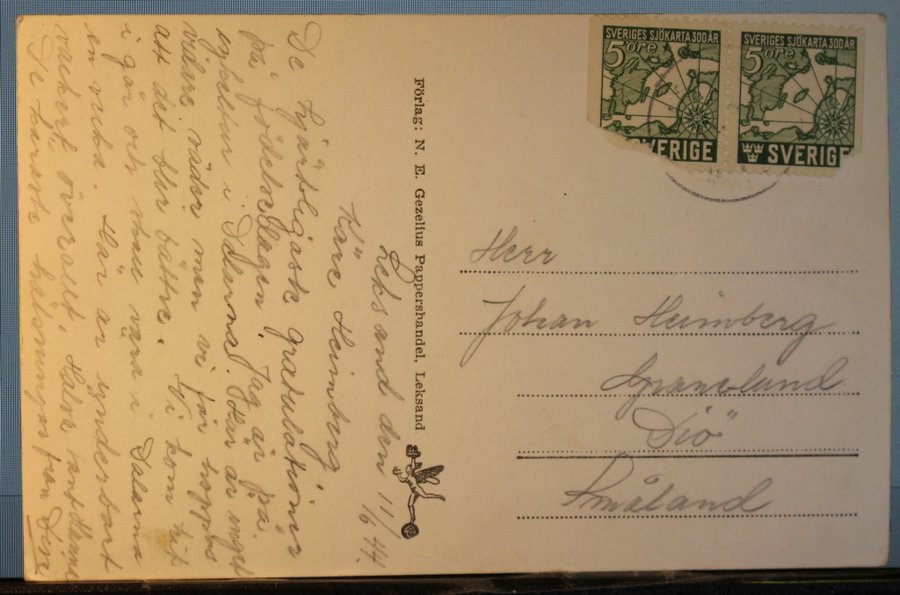 SVERIGES SJÖKARTA 300 ÅR
5 öre
SVERIGE
SVERIGES SJÖKARTA 300 ÅR
5 öre
SVERIGE
Herr
Johan Heimberg
Diö
Småland
Förlag: N. E. Gezelius Pappershandel, Leksand
Leksand den 11/6 44.
Käre Heimberg
De hjärtligaste gratulationer
på födelsedagen. Jag är på
i Dalarna. Här är inget
vidare väder men vi får hoppas
att det blir bättre. Vi kom hit
i går och skall vara i Dalarna
en vecka. Här är underbart
vackert överallt. Hälsa
De käraste hälsningar från